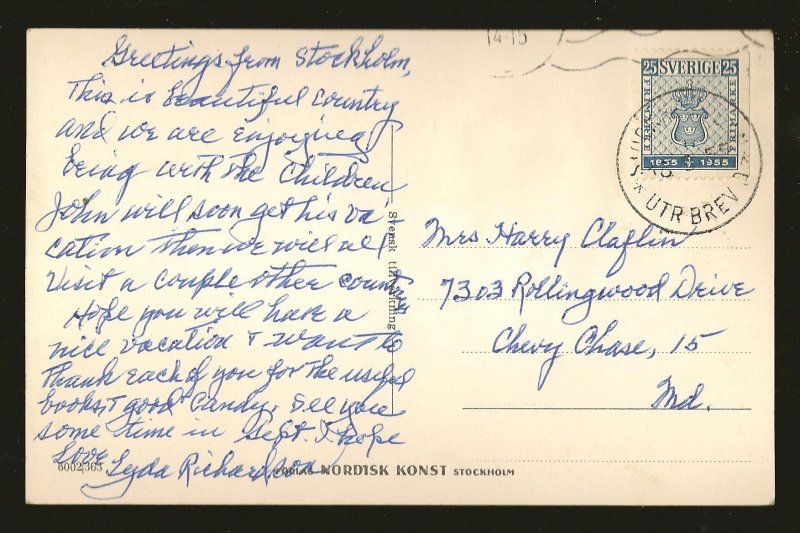 Greetings from Stockholm,
This is beautiful country
and we are enjoying
being with the Children
John will soon get his va
cation then we will all
visit a couple other country
Hope you will have a
nice vacation & want to
thank each of you for the useful
books, & good candy. See you
some time in Sept. I hope
Love
Lyda Richardson
6002/365
FÖRLAG NORDISK KONST STOCKHOLM
Svensk tillverkning
14-15
25 SVERIGE 25
FRIMÄRKE
1855 1955
UTR BREV
Mrs Harry Claflin
7303 Rollingwood Drive
Chevy Chase, 15
Md.